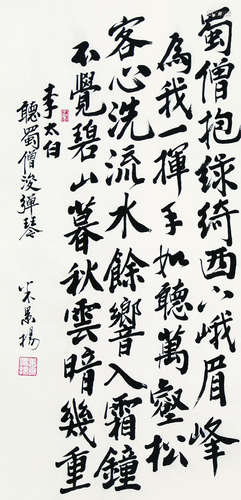 蜀僧抱綠綺西下峨眉峰
為我一揮手如聽萬壑松
客心洗流水餘響入霜鐘
不覺碧山暮秋雲暗幾重
李太白
聽蜀僧浚彈琴
米景揚